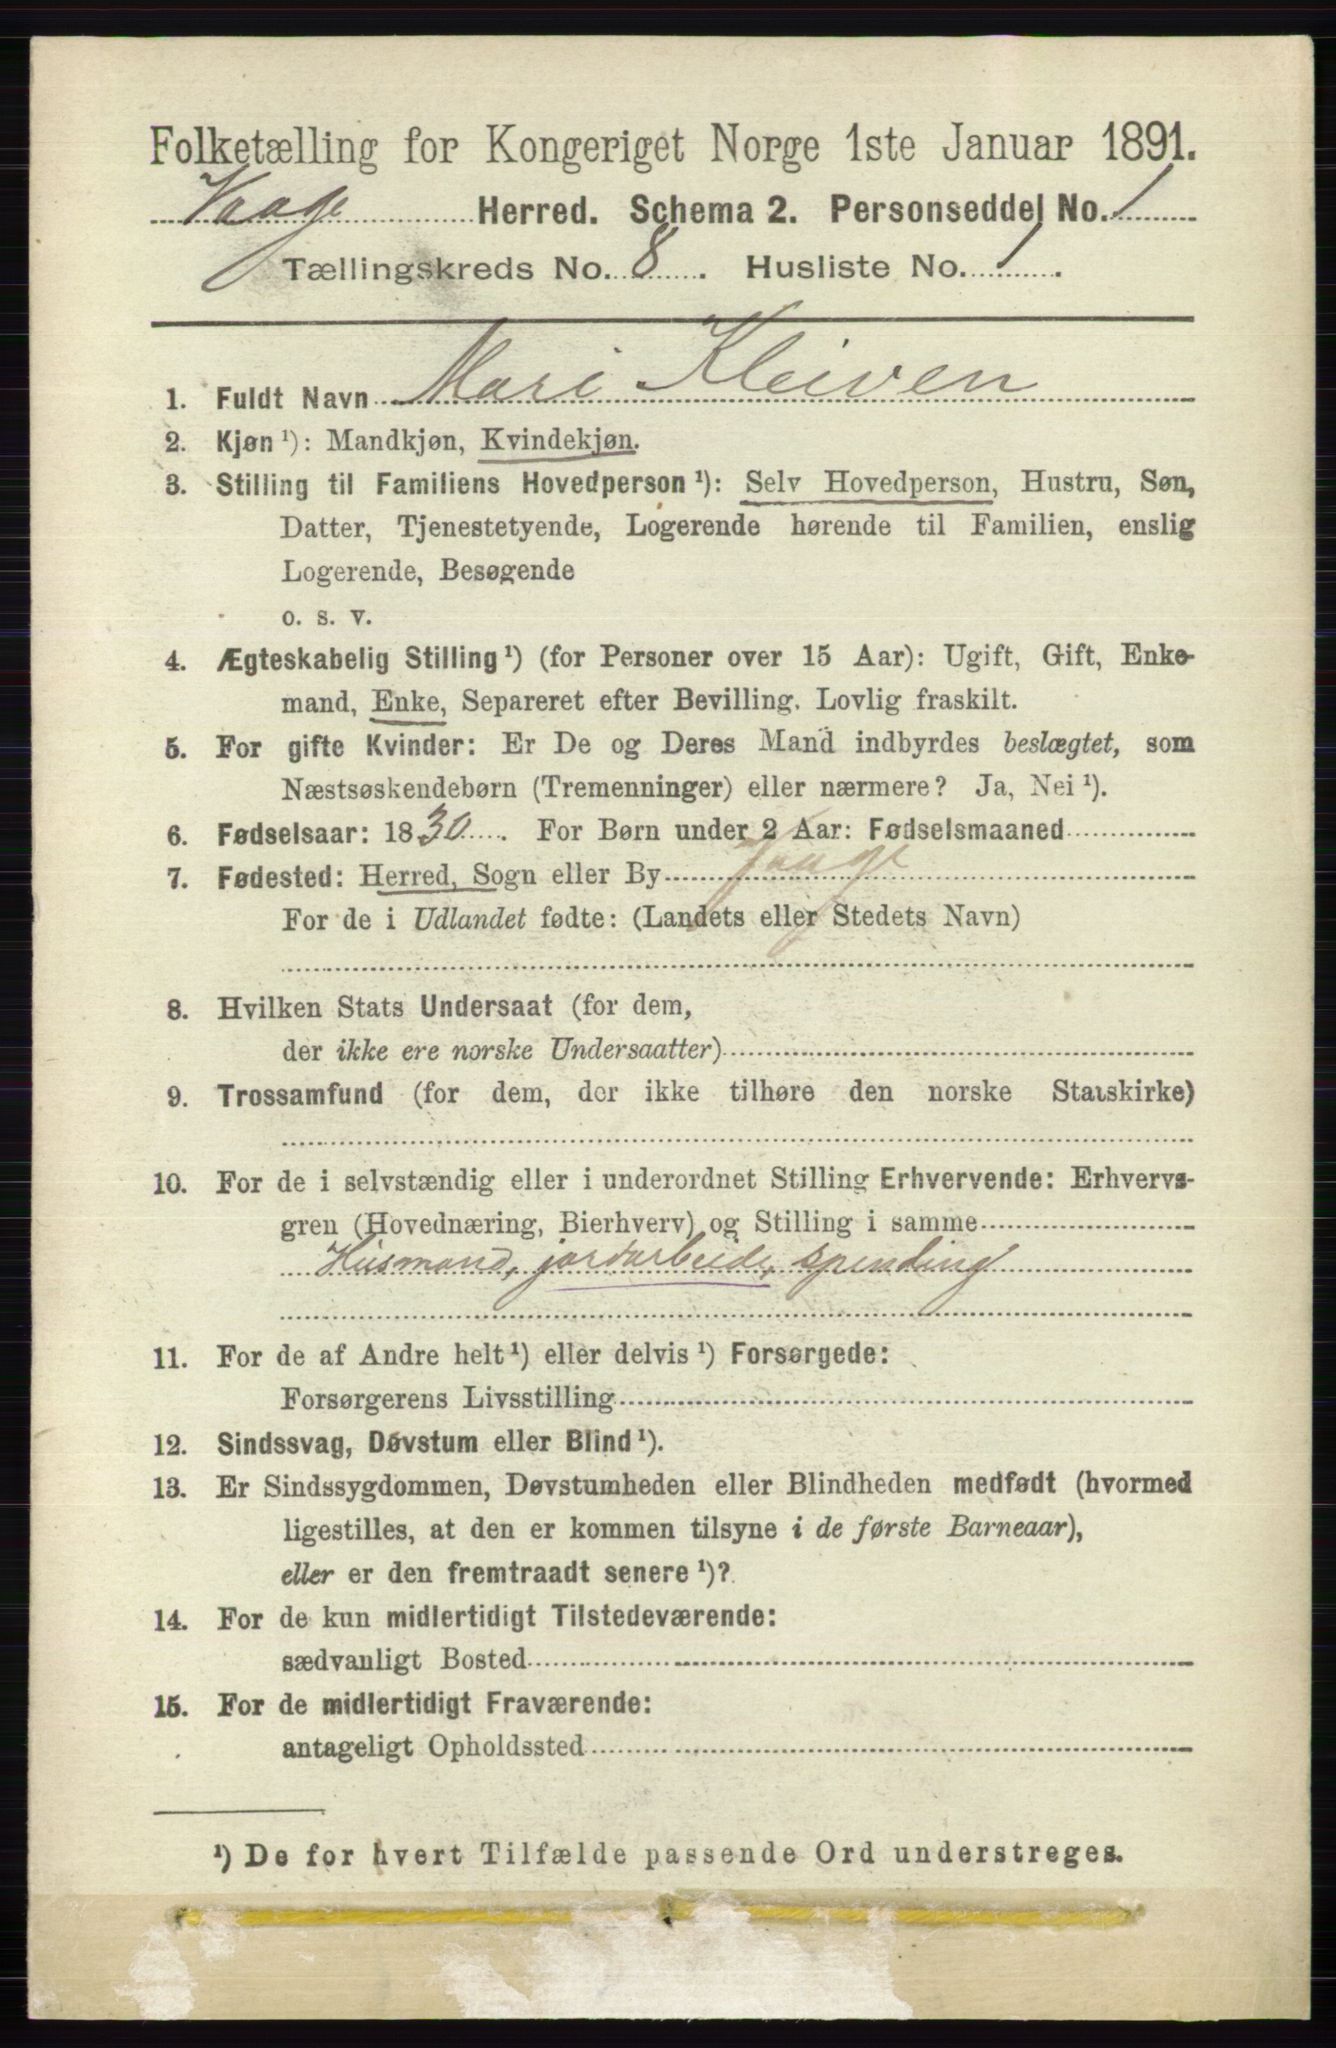 Folketælling for Kongeriget Norge 1ste Januar 1891.
Vaage Herred. Schema 2. Personseddel No. 1
Tællingskreds No. 8. Husliste No. 1.
1. Fuldt Navn Mari Kleiven
2. Kjøn ¹): Mandkjøn, Kvindekjøn.
3. Stilling til Familiens Hovedperson ¹): Selv Hovedperson, Hustru, Søn,
Datter, Tjenestetyende, Logerende hørende til Familien, enslig
Logerende, Besøgende
o. s. v.
4. Ægteskabelig Stilling ¹) (for Personer over 15 Aar): Ugift, Gift, Enke-
mand, Enke, Separeret efter Bevilling. Lovlig fraskilt.
5. For gifte Kvinder: Er De og Deres Mand indbyrdes beslægtet, som
Næstsøskendebørn (Tremenninger) eller nærmere? Ja, Nei ¹).
6. Fødselsaar: 1830. For Børn under 2 Aar: Fødselsmaaned
7. Fødested: Herred, Sogn eller By Vaage
For de i Udlandet fødte: (Landets eller Stedets Navn)
8. Hvilken Stats Undersaat (for dem,
der ikke ere norske Undersaatter)
9. Trossamfund (for dem, der ikke tilhøre den norske Statskirke)
10. For de i selvstændig eller i underordnet Stilling Erhvervende: Erhvervs-
gren (Hovednæring, Bierhverv) og Stilling i samme
Husmand, jordarbeide, spending
11. For de af Andre helt ¹) eller delvis ¹) Forsørgede:
Forsørgerens Livsstilling
12. Sindssvag, Døvstum eller Blind ¹).
13. Er Sindssygdommen, Døvstumheden eller Blindheden medfødt (hvormed
ligestilles, at den er kommen tilsyne i de første Barneaar),
eller er den fremtraadt senere ¹)?
14. For de kun midlertidigt Tilstedeværende:
sædvanligt Bosted
15. For de midlertidigt Fraværende:
antageligt Opholdssted
¹) De for hvert Tilfælde passende Ord understreges.